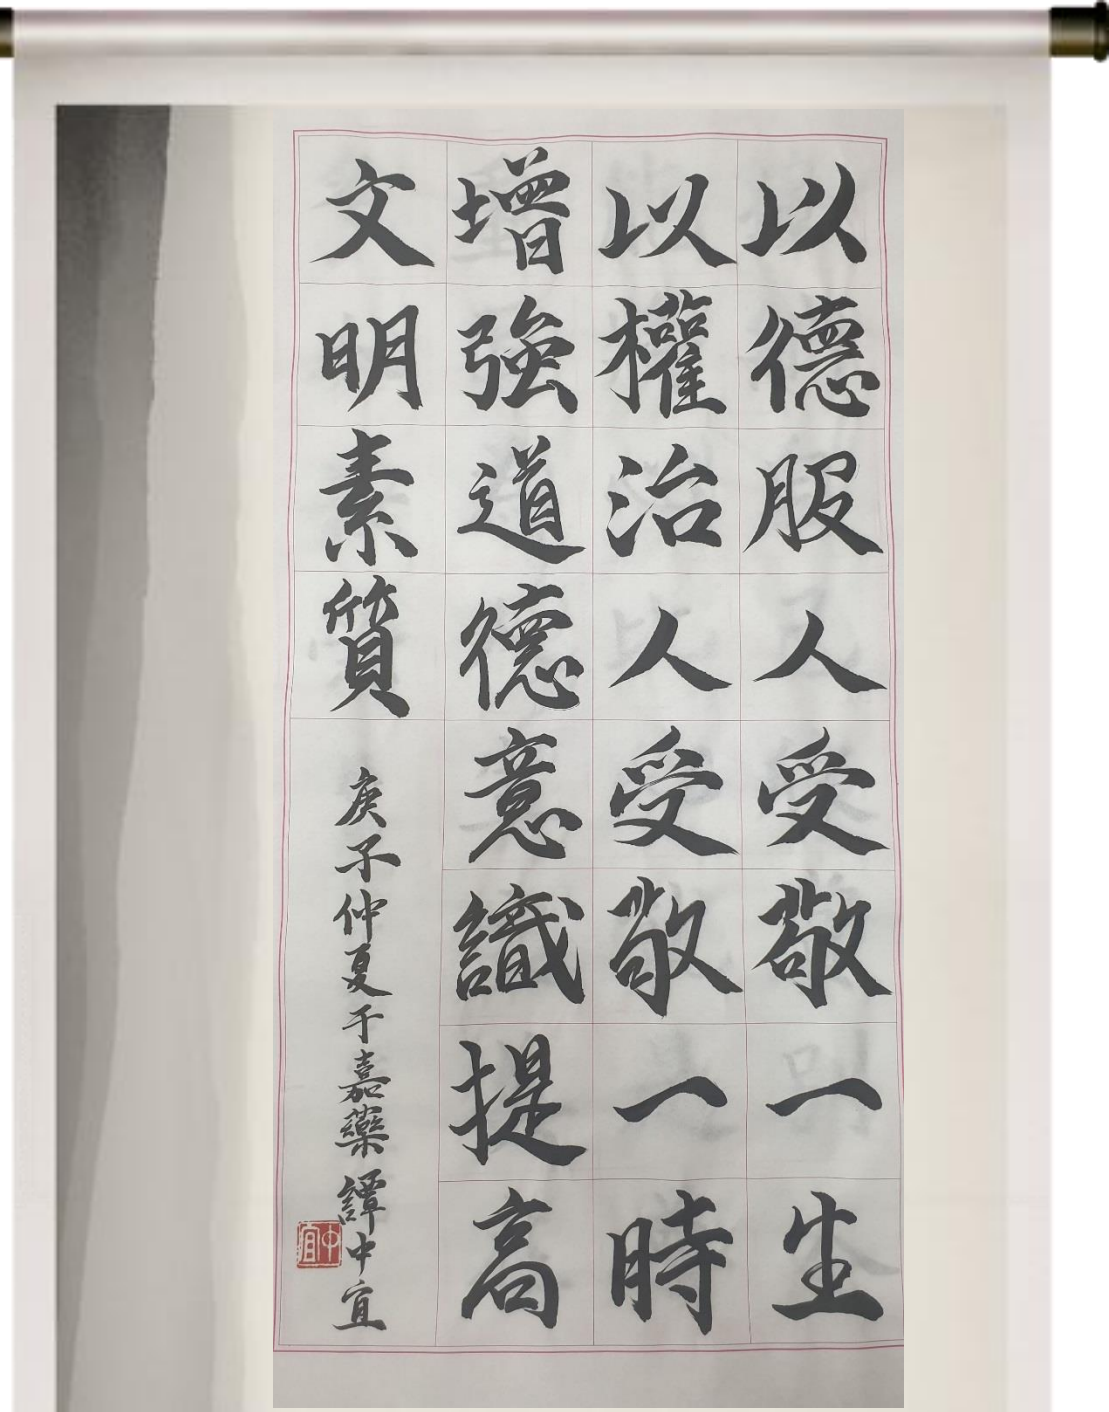 以德服人受敬一生
以權治人受敬一時
增強道德意識提高
文明素質
庚子仲夏于嘉藥譚中宜
中宜